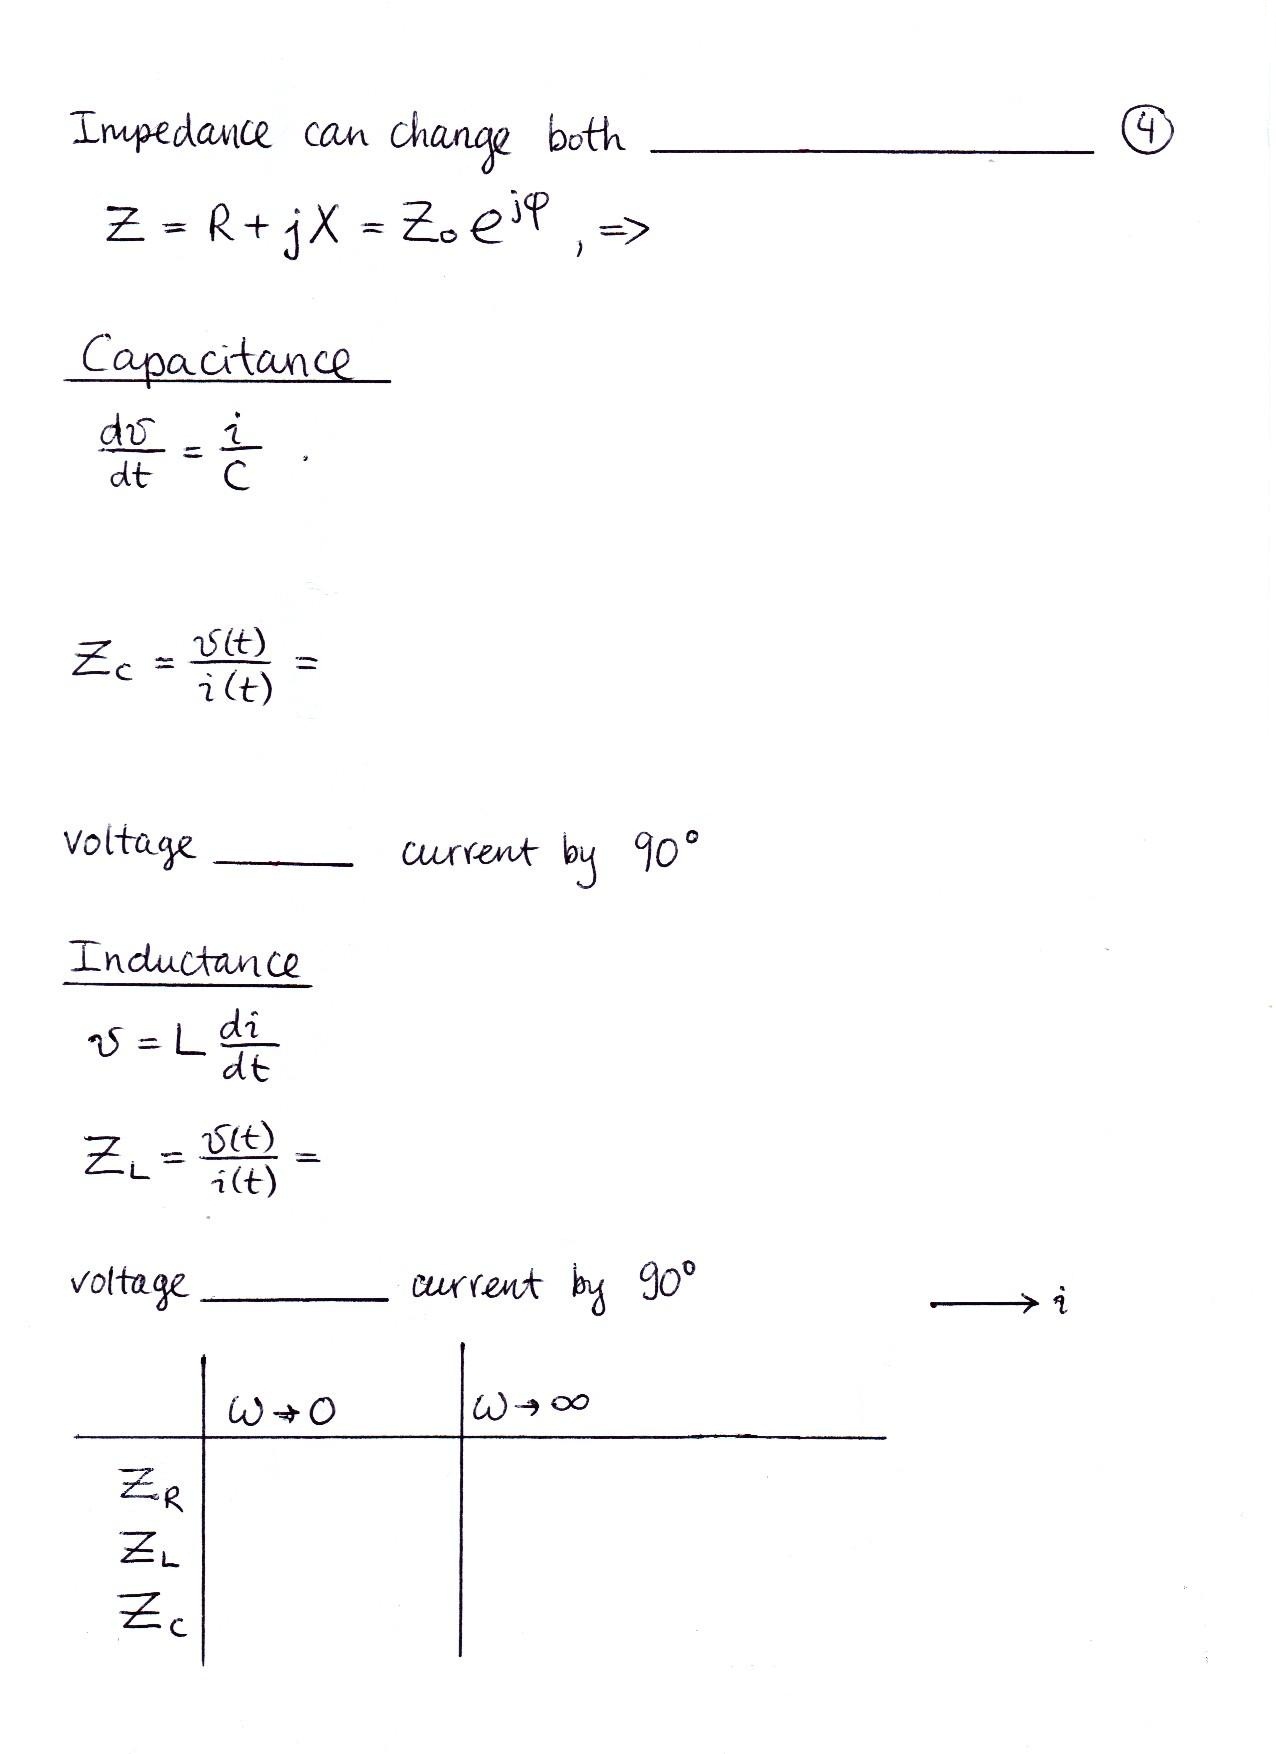 Impedance can change both ____________ ④
Z = R + jX = Z₀ e^{jφ} , =>
Capacitance
dv/dt = i/C .
Z_C = v(t)/i(t) =
voltage ______ current by 90°
Inductance
v = L di/dt
Z_L = v(t)/i(t) =
voltage ________ current by 90°
→ i
ω → 0 ω → ∞
Z_R
Z_L
Z_C